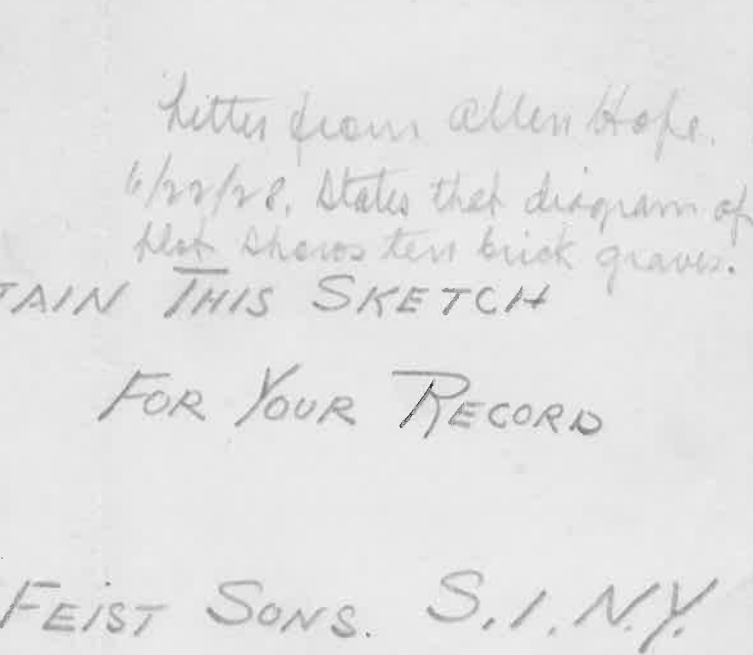 Letter from Allen Hope.
6/22/28. States that diagram of
plot shows ten brick graves.
TAIN THIS SKETCH
FOR YOUR RECORD
FEIST SONS. S.I. N.Y.